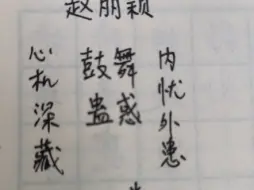 赵丽颖
心机深藏
鼓舞
蛊惑
内忧外患